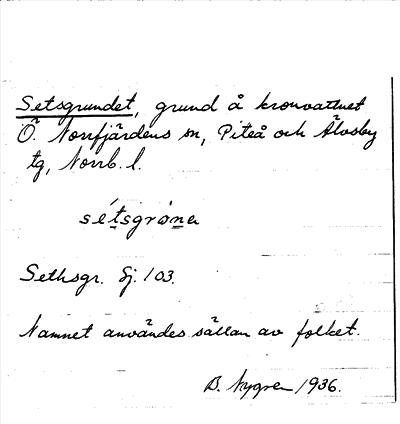 Setsgrundet, grund å kronvattnet
Ö. Norrfjärdens sn, Piteå och Älvsby
tg, Norrb. l.
sétsgrøna
Sethsgr. Sj. 103.
Namnet användes sällan av folket.
B. Nygren 1936.